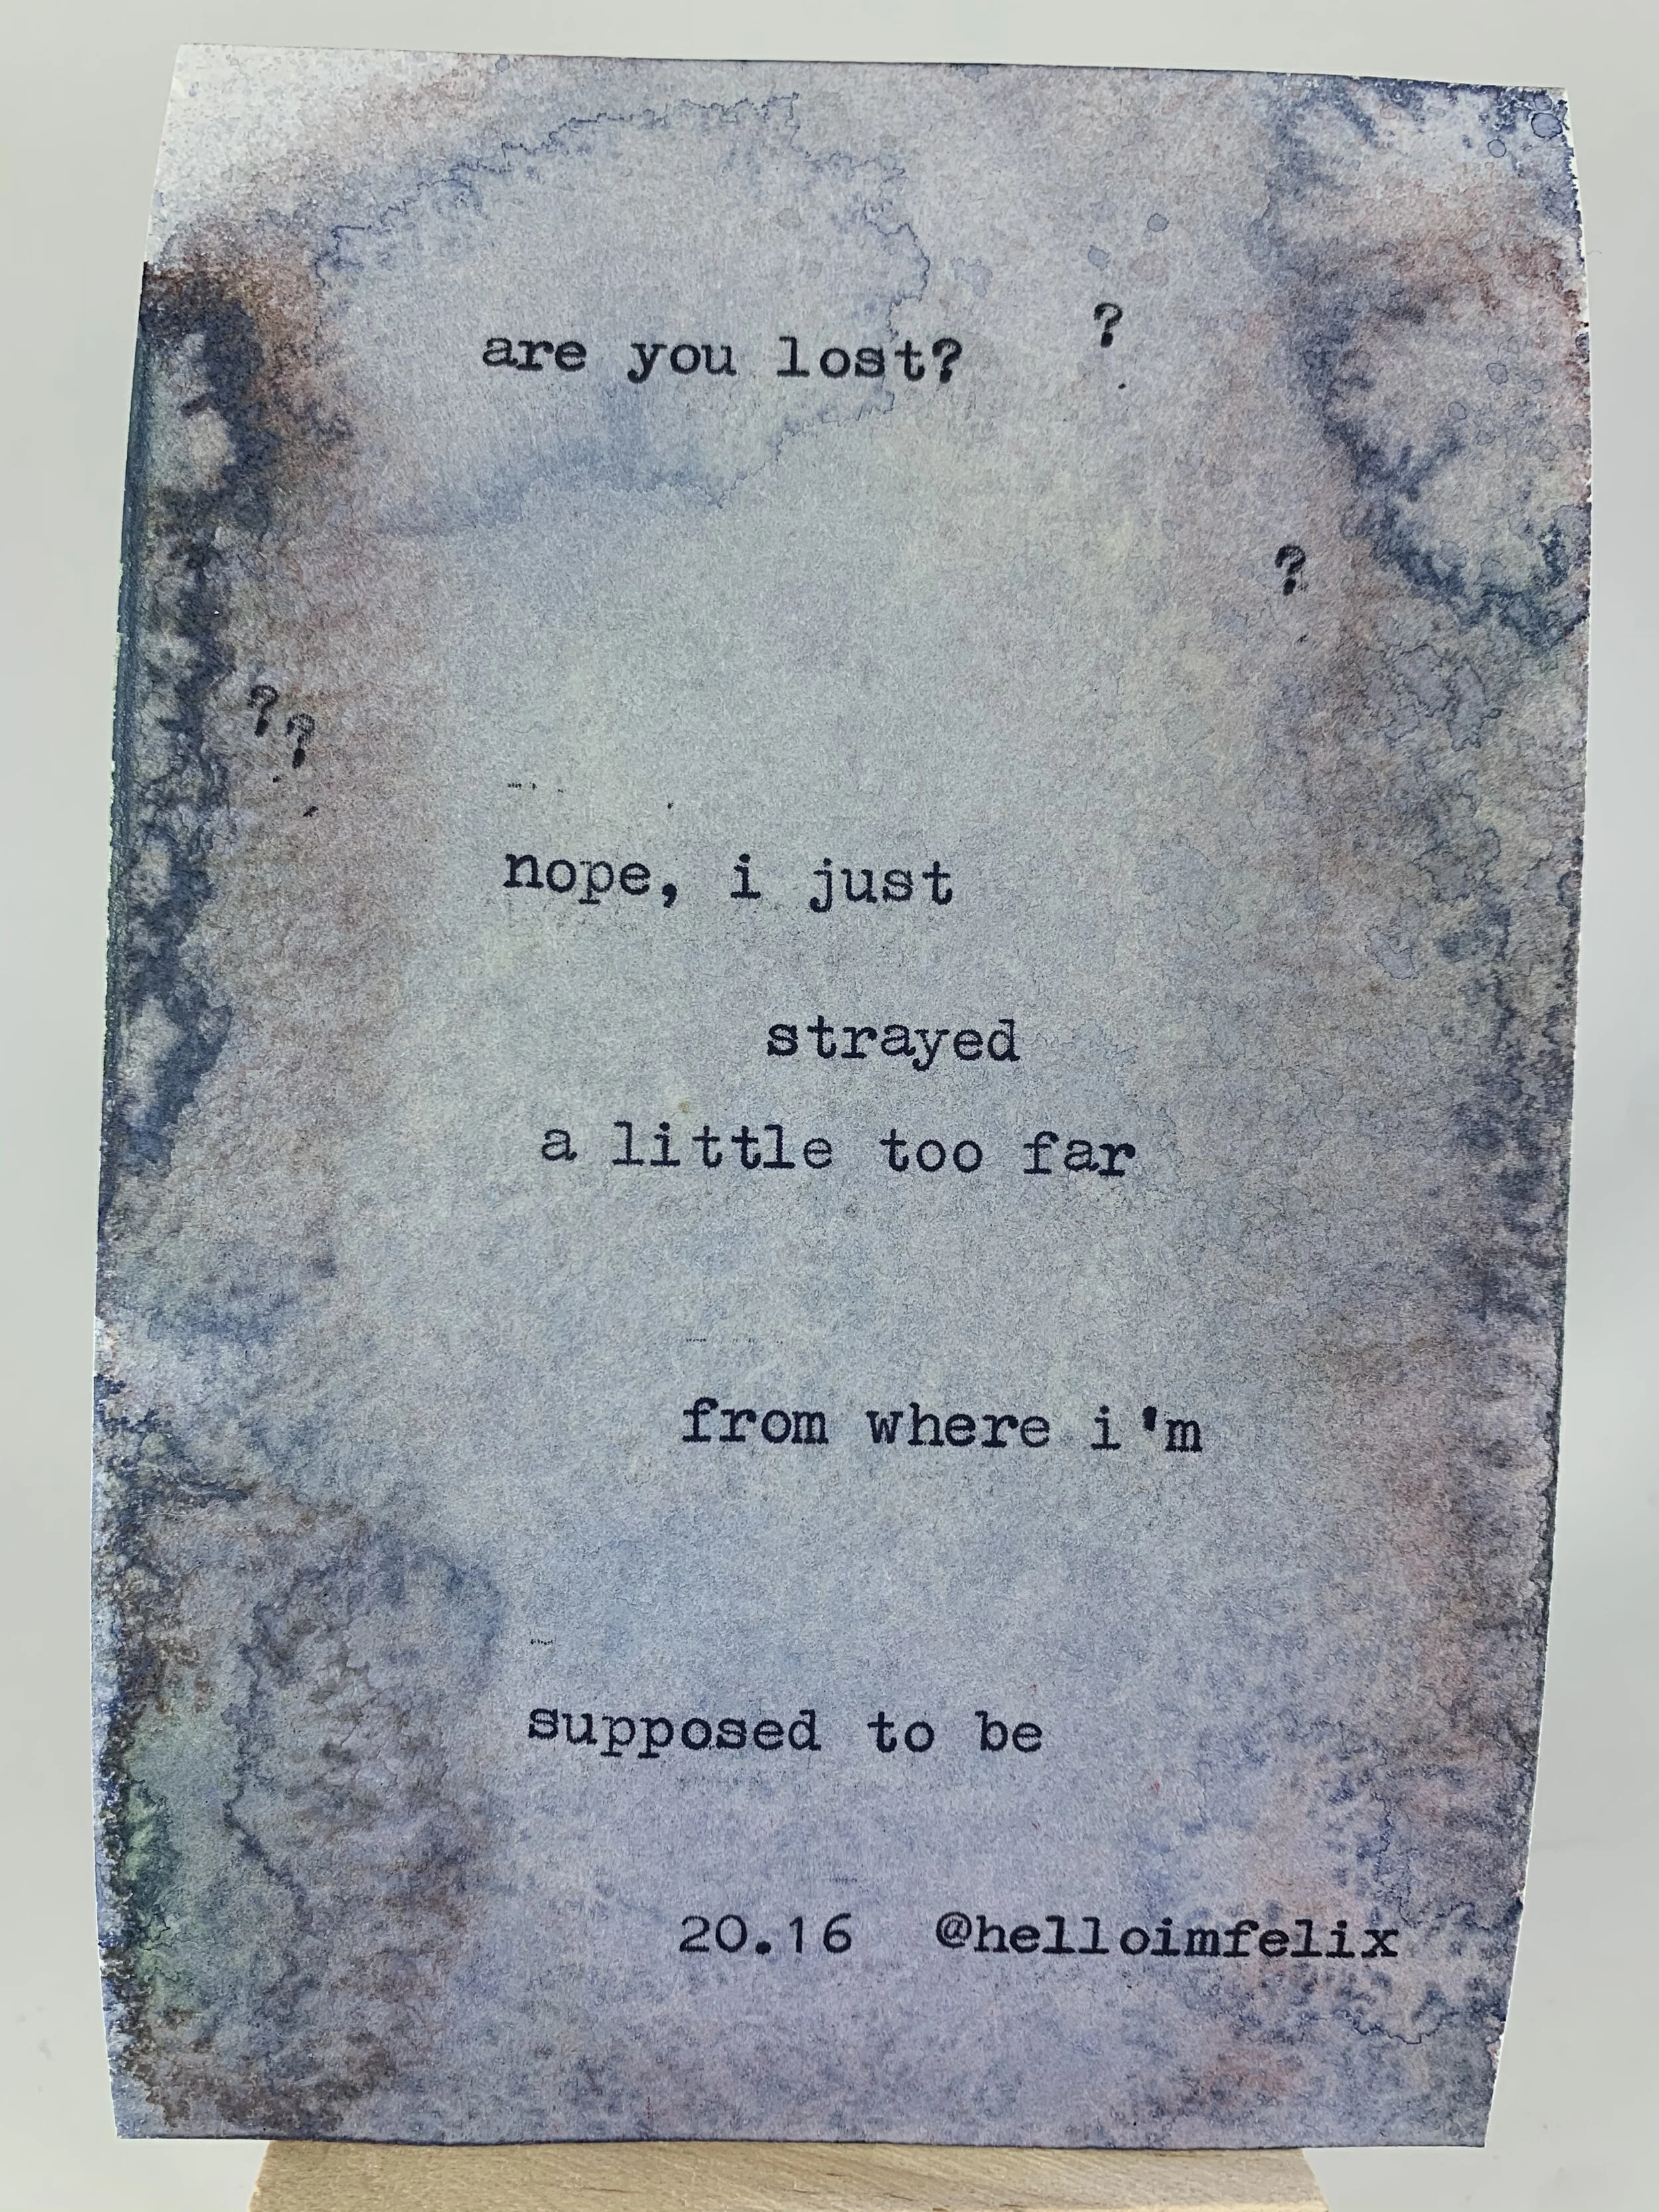 are you lost? ?
?
? ?
nope, i just
strayed
a little too far
from where i'm
supposed to be
20.16 @helloimfelix